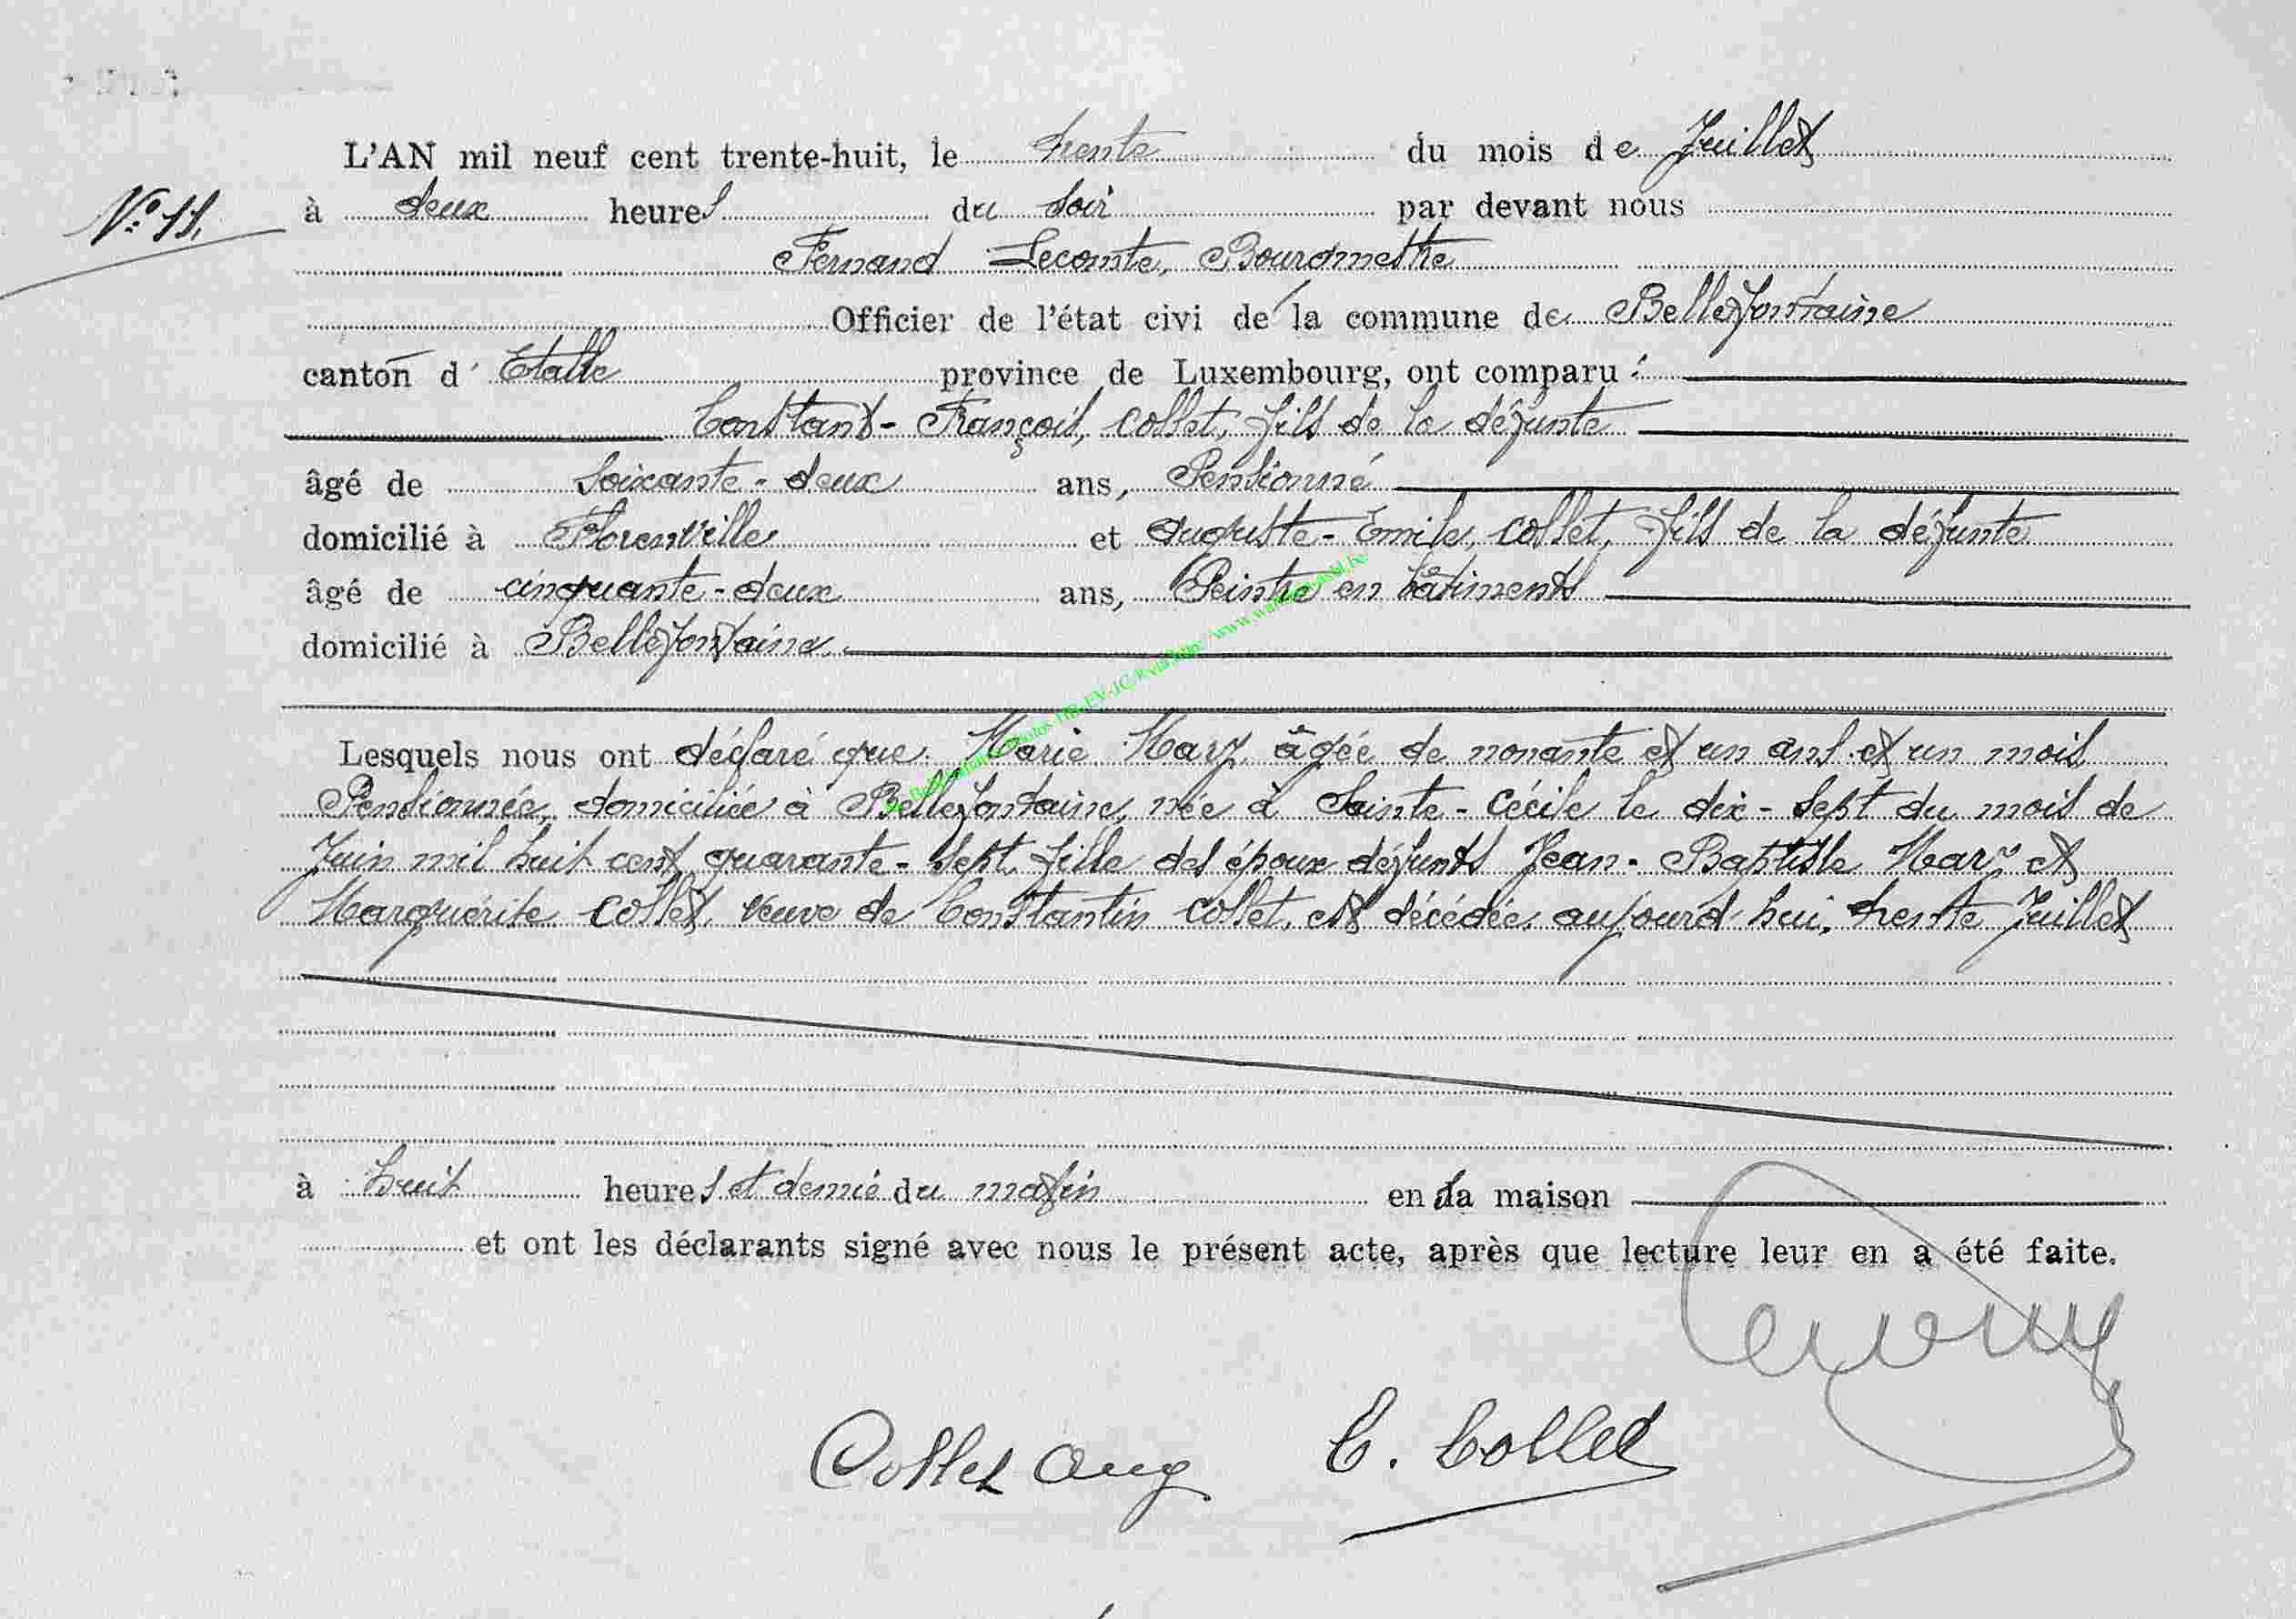 L'AN mil neuf cent trente-huit, le trente du mois de Juillet
N° 11. à deux heures du soir par devant nous
Fernand Lecomte, Bourgmestre
Officier de l'état civi de la commune de Bellefontaine
canton d' Etalle province de Luxembourg, ont comparu :
Constant-François, Collet, fils de la défunte
âgé de soixante-deux ans, Pensionné
domicilié à Florenville et Auguste-Emile, Collet, fils de la défunte
âgé de cinquante-deux ans, Peintre en bâtiments
domicilié à Bellefontaine.
Lesquels nous ont déclaré que Marie Mary, âgée de nonante et un ans et un mois
Pensionnée, domiciliée à Bellefontaine, née à Sainte-Cécile le dix-sept du mois de
Juin mil huit cent quarante-sept, fille des époux défunts Jean-Baptiste Mary et
Marguérite Collet, veuve de Constantin Collet, est décédée, aujourd'hui, trente Juillet
à huit heures et demie du matin en sa maison
et ont les déclarants signé avec nous le présent acte, après que lecture leur en a été faite.
Collet Aug C. Collet